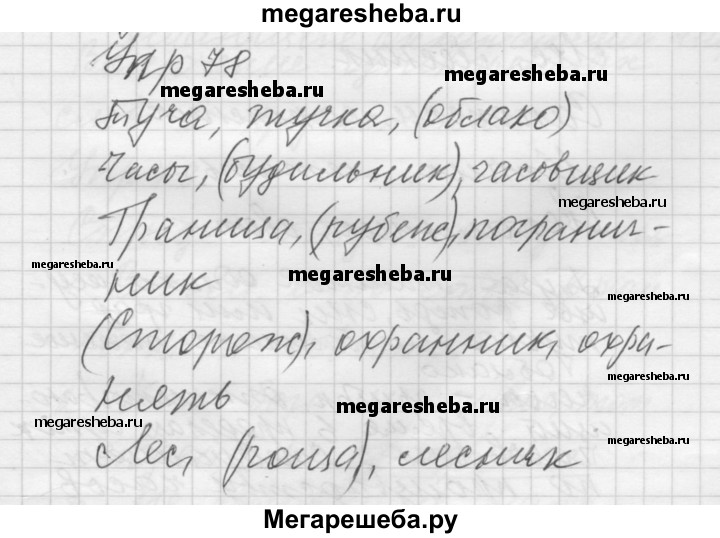 megaresheba.ru
Упр 78
megaresheba.ru
megaresheba.ru
Туча, тучка, (облако)
Часы, (будильник), часовщик
megaresheba.ru
Граница, (рубеж), погранич-
megaresheba.ru
megaresheba.ru
ник
megaresheba.ru
(Сторож), охранник, охра-
megaresheba.ru
нять
megaresheba.ru
megaresheba.ru
Лес, (роща), лесник
megaresheba.ru
Мегарешеба.ру